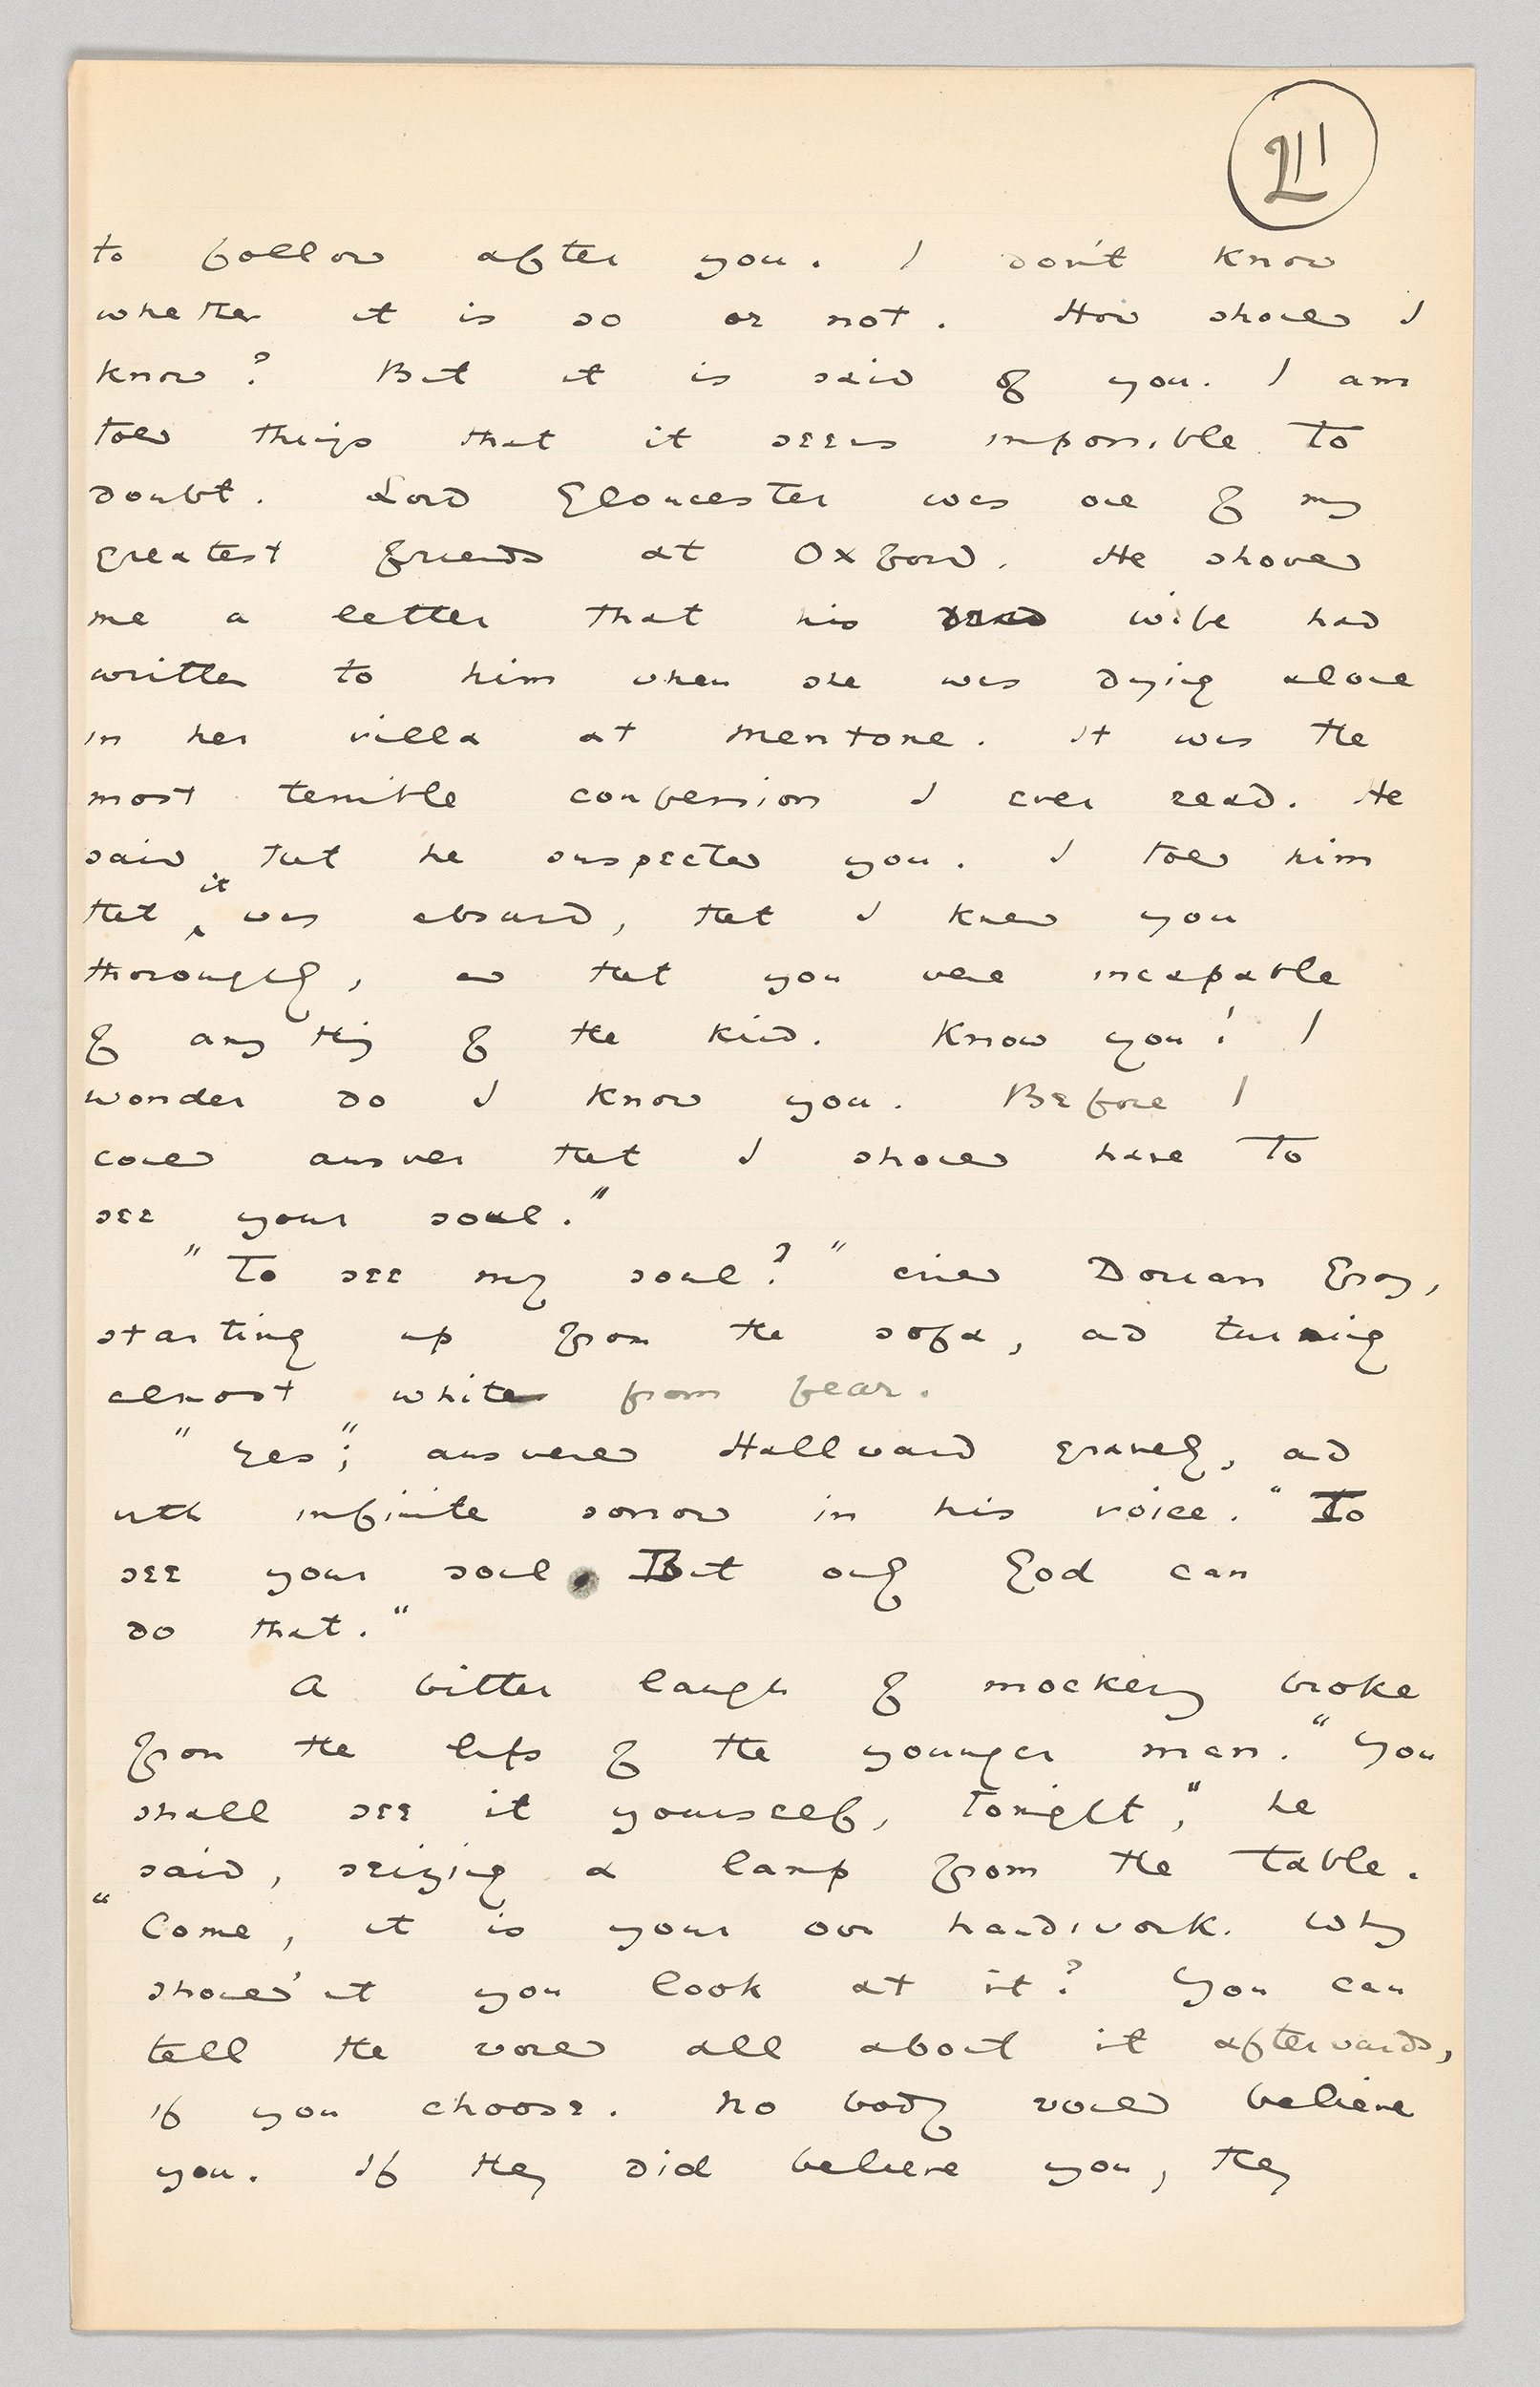 211
to follow after you. I don't know
whether it is so or not. How should I
know? But it is said of you. I am
told things that it seems impossible to
doubt. Lord Gloucester was one of my
greatest friends at Oxford. He showed
me a letter that his wife had
written to him when she was dying alone
in her villa at Mentone. It was the
most terrible confession I ever read. He
said that he suspected you. I told him
that it was absurd, that I knew you
thoroughly, and that you were incapable
of any thing of the kind. Know you! I
wonder do I know you. Before I
could answer that I should have to
see your soul."
"To see my soul?" cried Dorian Gray,
starting up from the sofa, and turning
almost white from fear.
"Yes", answered Hallward gravely, and
with infinite sorrow in his voice. "To
see your soul. But only God can
do that."
A bitter laugh of mockery broke
from the lips of the younger man. "You
shall see it yourself, tonight," he
said, seizing a lamp from the table.
"Come, it is your own handiwork. Why
should'nt you look at it? You can
tell the world all about it afterwards,
if you choose. No body would believe
you. If they did believe you, they